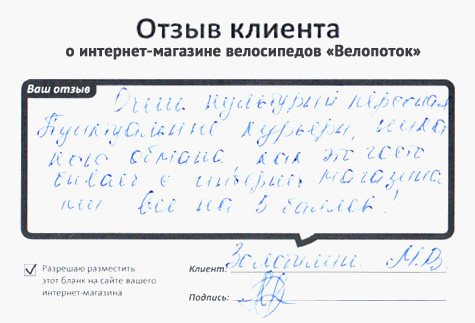 Отзыв клиента
о интернет-магазине велосипедов «Велопоток»
Ваш отзыв
Очень культурный персонал
Пунктуальные курьеры, ника
кого обмана, как это часто
бывает с интернет магазина
ми все на 5 баллов!
Разрешаю разместить
этот бланк на сайте вашего
интернет-магазина
Клиент: М.В.
Подпись: